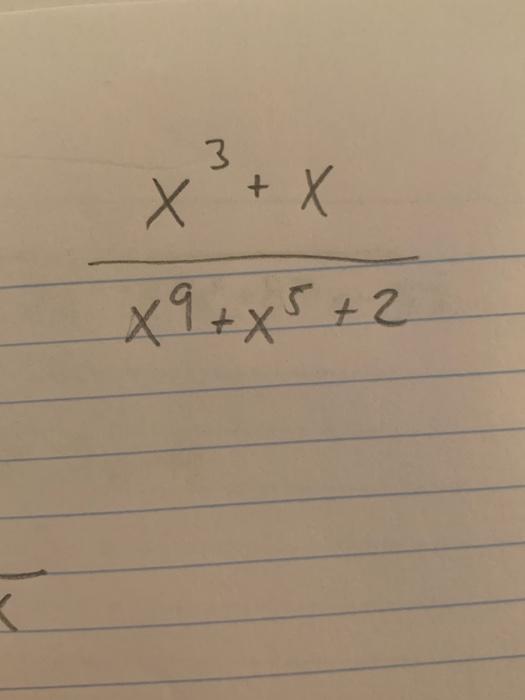 x³ + x
x⁹ + x⁵ + 2
x